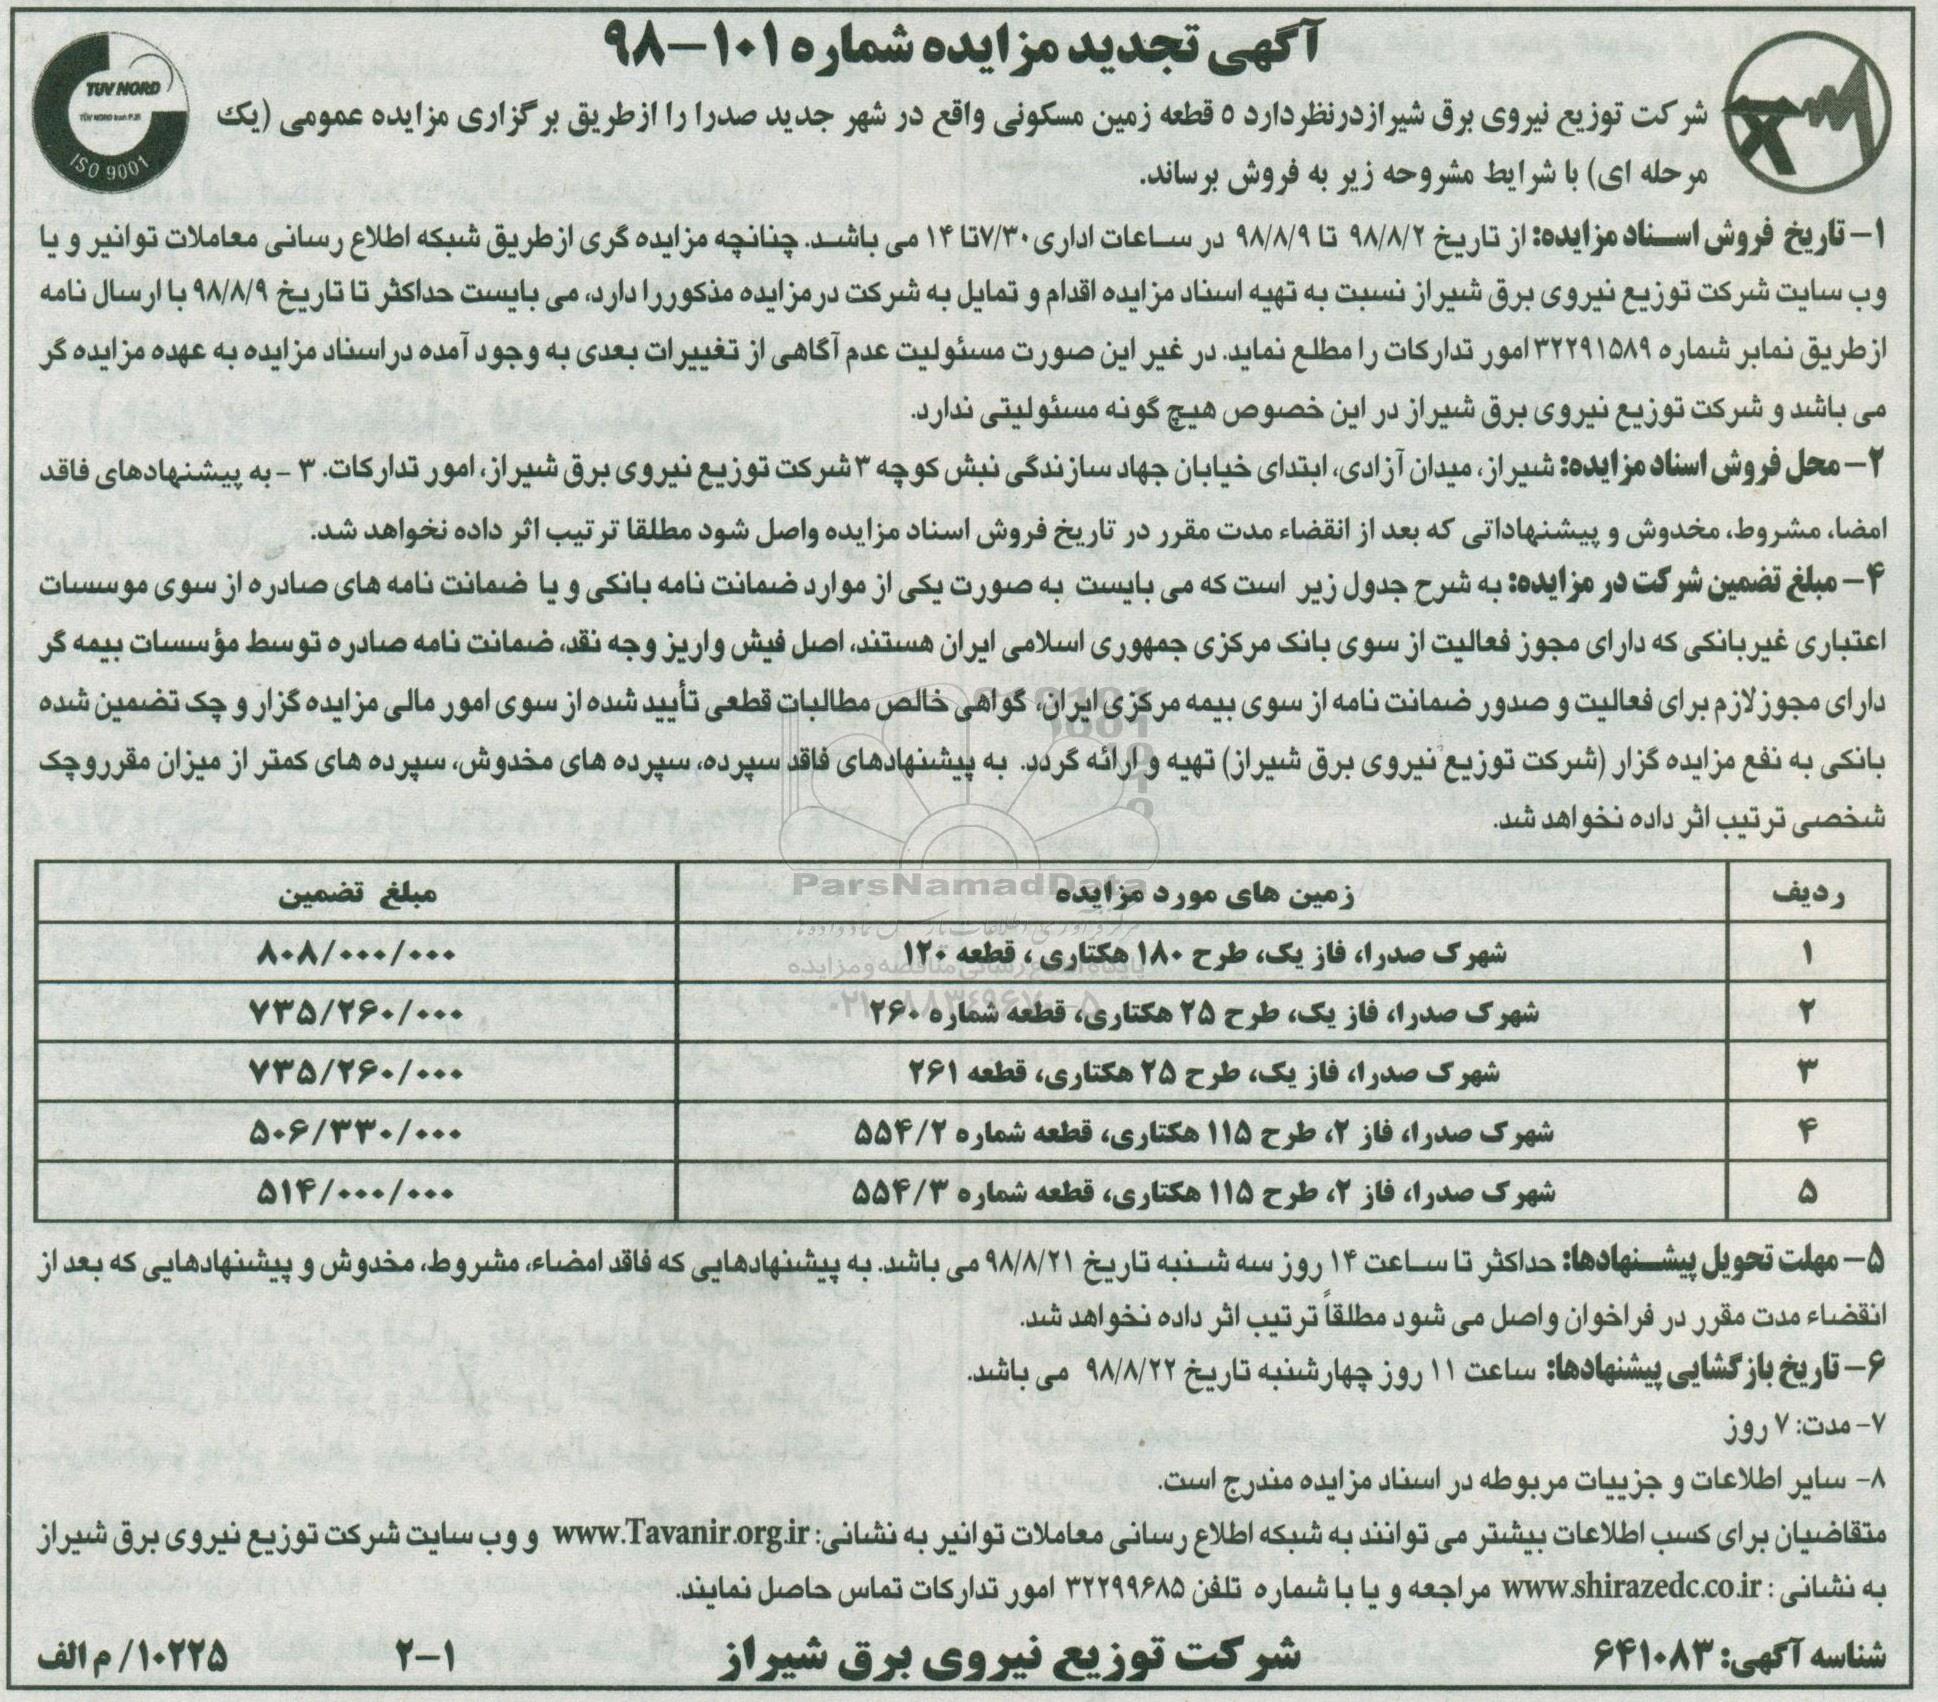 آگهی تجدید مزایده شماره ۱۰۱-۹۸
TÜV NORD
TÜV NORD Iran P.JS
ISO 9001
شرکت توزیع نیروی برق شیرازدرنظردارد ۵ قطعه زمین مسکونی واقع در شهر جدید صدرا را ازطریق برگزاری مزایده عمومی (یک
مرحله ای) با شرایط مشروحه زیر به فروش برساند.
۱- تاریخ فروش اسناد مزایده: از تاریخ ۹۸/۸/۲ تا ۹۸/۸/۹ در ساعات اداری ۷/۳۰تا ۱۴ می باشد. چنانچه مزایده گری ازطریق شبکه اطلاع رسانی معاملات توانیر و یا
وب سایت شرکت توزیع نیروی برق شیراز نسبت به تهیه اسناد مزایده اقدام و تمایل به شرکت درمزایده مذکوررا دارد، می بایست حداکثر تا تاریخ ۹۸/۸/۹ با ارسال نامه
ازطریق نمابر شماره ۳۲۲۹۱۵۸۹ امور تدارکات را مطلع نماید. در غیر این صورت مسئولیت عدم آگاهی از تغییرات بعدی به وجود آمده دراسناد مزایده به عهده مزایده گر
می باشد و شرکت توزیع نیروی برق شیراز در این خصوص هیچ گونه مسئولیتی ندارد.
۲- محل فروش اسناد مزایده: شیراز، میدان آزادی، ابتدای خیابان جهاد سازندگی نبش کوچه ۳ شرکت توزیع نیروی برق شیراز، امور تدارکات. ۳ - به پیشنهادهای فاقد
امضا، مشروط، مخدوش و پیشنهاداتی که بعد از انقضاء مدت مقرر در تاریخ فروش اسناد مزایده واصل شود مطلقا ترتیب اثر داده نخواهد شد.
۴- مبلغ تضمین شرکت در مزایده: به شرح جدول زیر است که می بایست به صورت یکی از موارد ضمانت نامه بانکی و یا ضمانت نامه های صادره از سوی موسسات
اعتباری غیربانکی که دارای مجوز فعالیت از سوی بانک مرکزی جمهوری اسلامی ایران هستند، اصل فیش واریز وجه نقد، ضمانت نامه صادره توسط مؤسسات بیمه گر
دارای مجوزلازم برای فعالیت و صدور ضمانت نامه از سوی بیمه مرکزی ایران، گواهی خالص مطالبات قطعی تأیید شده از سوی امور مالی مزایده گزار و چک تضمین شده
بانکی به نفع مزایده گزار (شرکت توزیع نیروی برق شیراز) تهیه و ارائه گردد. به پیشنهادهای فاقد سپرده، سپرده های مخدوش، سپرده های کمتر از میزان مقرروچک
شخصی ترتیب اثر داده نخواهد شد.
ParsNamadData
ردیف زمین های مورد مزایده مبلغ تضمین
۱ شهرک صدرا، فاز یک، طرح ۱۸۰ هکتاری ، قطعه ۱۲۰ ۸۰۸/۰۰۰/۰۰۰
۲ شهرک صدرا، فاز یک، طرح ۲۵ هکتاری، قطعه شماره ۲۶۰ ۷۳۵/۲۶۰/۰۰۰
۳ شهرک صدرا، فاز یک، طرح ۲۵ هکتاری، قطعه ۲۶۱ ۷۳۵/۲۶۰/۰۰۰
۴ شهرک صدرا، فاز ۲، طرح ۱۱۵ هکتاری، قطعه شماره ۵۵۴/۲ ۵۰۶/۳۳۰/۰۰۰
۵ شهرک صدرا، فاز ۲، طرح ۱۱۵ هکتاری، قطعه شماره ۵۵۴/۳ ۵۱۴/۰۰۰/۰۰۰
۵- مهلت تحویل پیشنهادها: حداکثر تا ساعت ۱۴ روز سه شنبه تاریخ ۹۸/۸/۲۱ می باشد. به پیشنهادهایی که فاقد امضاء، مشروط، مخدوش و پیشنهادهایی که بعد از
انقضاء مدت مقرر در فراخوان واصل می شود مطلقاً ترتیب اثر داده نخواهد شد.
۶- تاریخ بازگشایی پیشنهادها: ساعت ۱۱ روز چهارشنبه تاریخ ۹۸/۸/۲۲ می باشد.
۷- مدت: ۷ روز
۸- سایر اطلاعات و جزییات مربوطه در اسناد مزایده مندرج است.
متقاضیان برای کسب اطلاعات بیشتر می توانند به شبکه اطلاع رسانی معاملات توانیر به نشانی: www.Tavanir.org.ir و وب سایت شرکت توزیع نیروی برق شیراز
به نشانی : www.shirazedc.co.ir مراجعه و یا با شماره تلفن ۳۲۲۹۹۶۸۵ امور تدارکات تماس حاصل نمایند.
شناسه آگهی: ۶۴۱۰۸۳ شرکت توزیع نیروی برق شیراز ۲-۱ ۱۰۲۲۵/ م الف